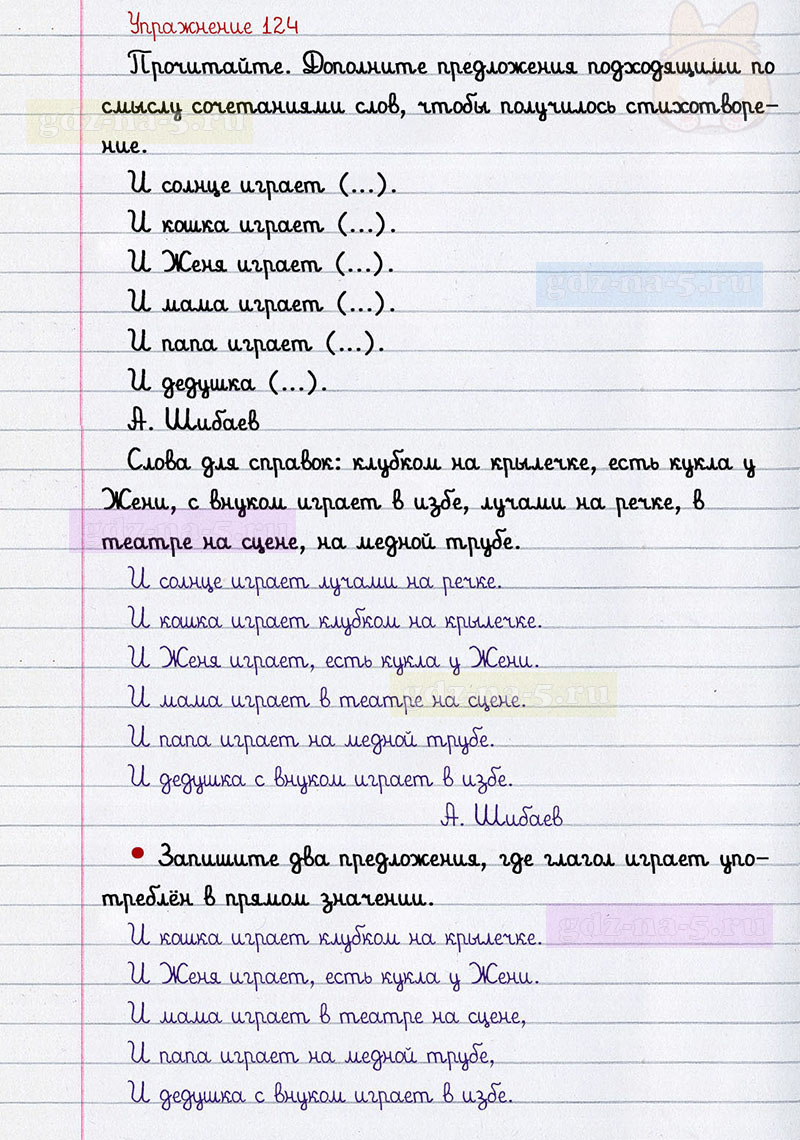 Упражнение 124
Прочитайте. Дополните предложения подходящими по
смыслу сочетаниями слов, чтобы получилось стихотворе-
gdz-na-5.ru
ние.
И солнце играет (...).
И кошка играет (...).
И Женя играет (...).
gdz-na-5.ru
И мама играет (...).
И папа играет (...).
И дедушка (...).
А. Шибаев
Слова для справок: клубком на крылечке, есть кукла у
Жени, с внуком играет в избе, лучами на речке, в
gdz-na-5.ru
театре на сцене, на медной трубе.
И солнце играет лучами на речке.
И кошка играет клубком на крылечке.
И Женя играет, есть кукла у Жени.
gdz-na-5.ru
И мама играет в театре на сцене.
И папа играет на медной трубе.
И дедушка с внуком играет в избе.
А. Шибаев
• Запишите два предложения, где глагол играет упо-
треблён в прямом значении.
gdz-na-5.ru
И кошка играет клубком на крылечке.
И Женя играет, есть кукла у Жени.
И мама играет в театре на сцене,
И папа играет на медной трубе,
И дедушка с внуком играет в избе.